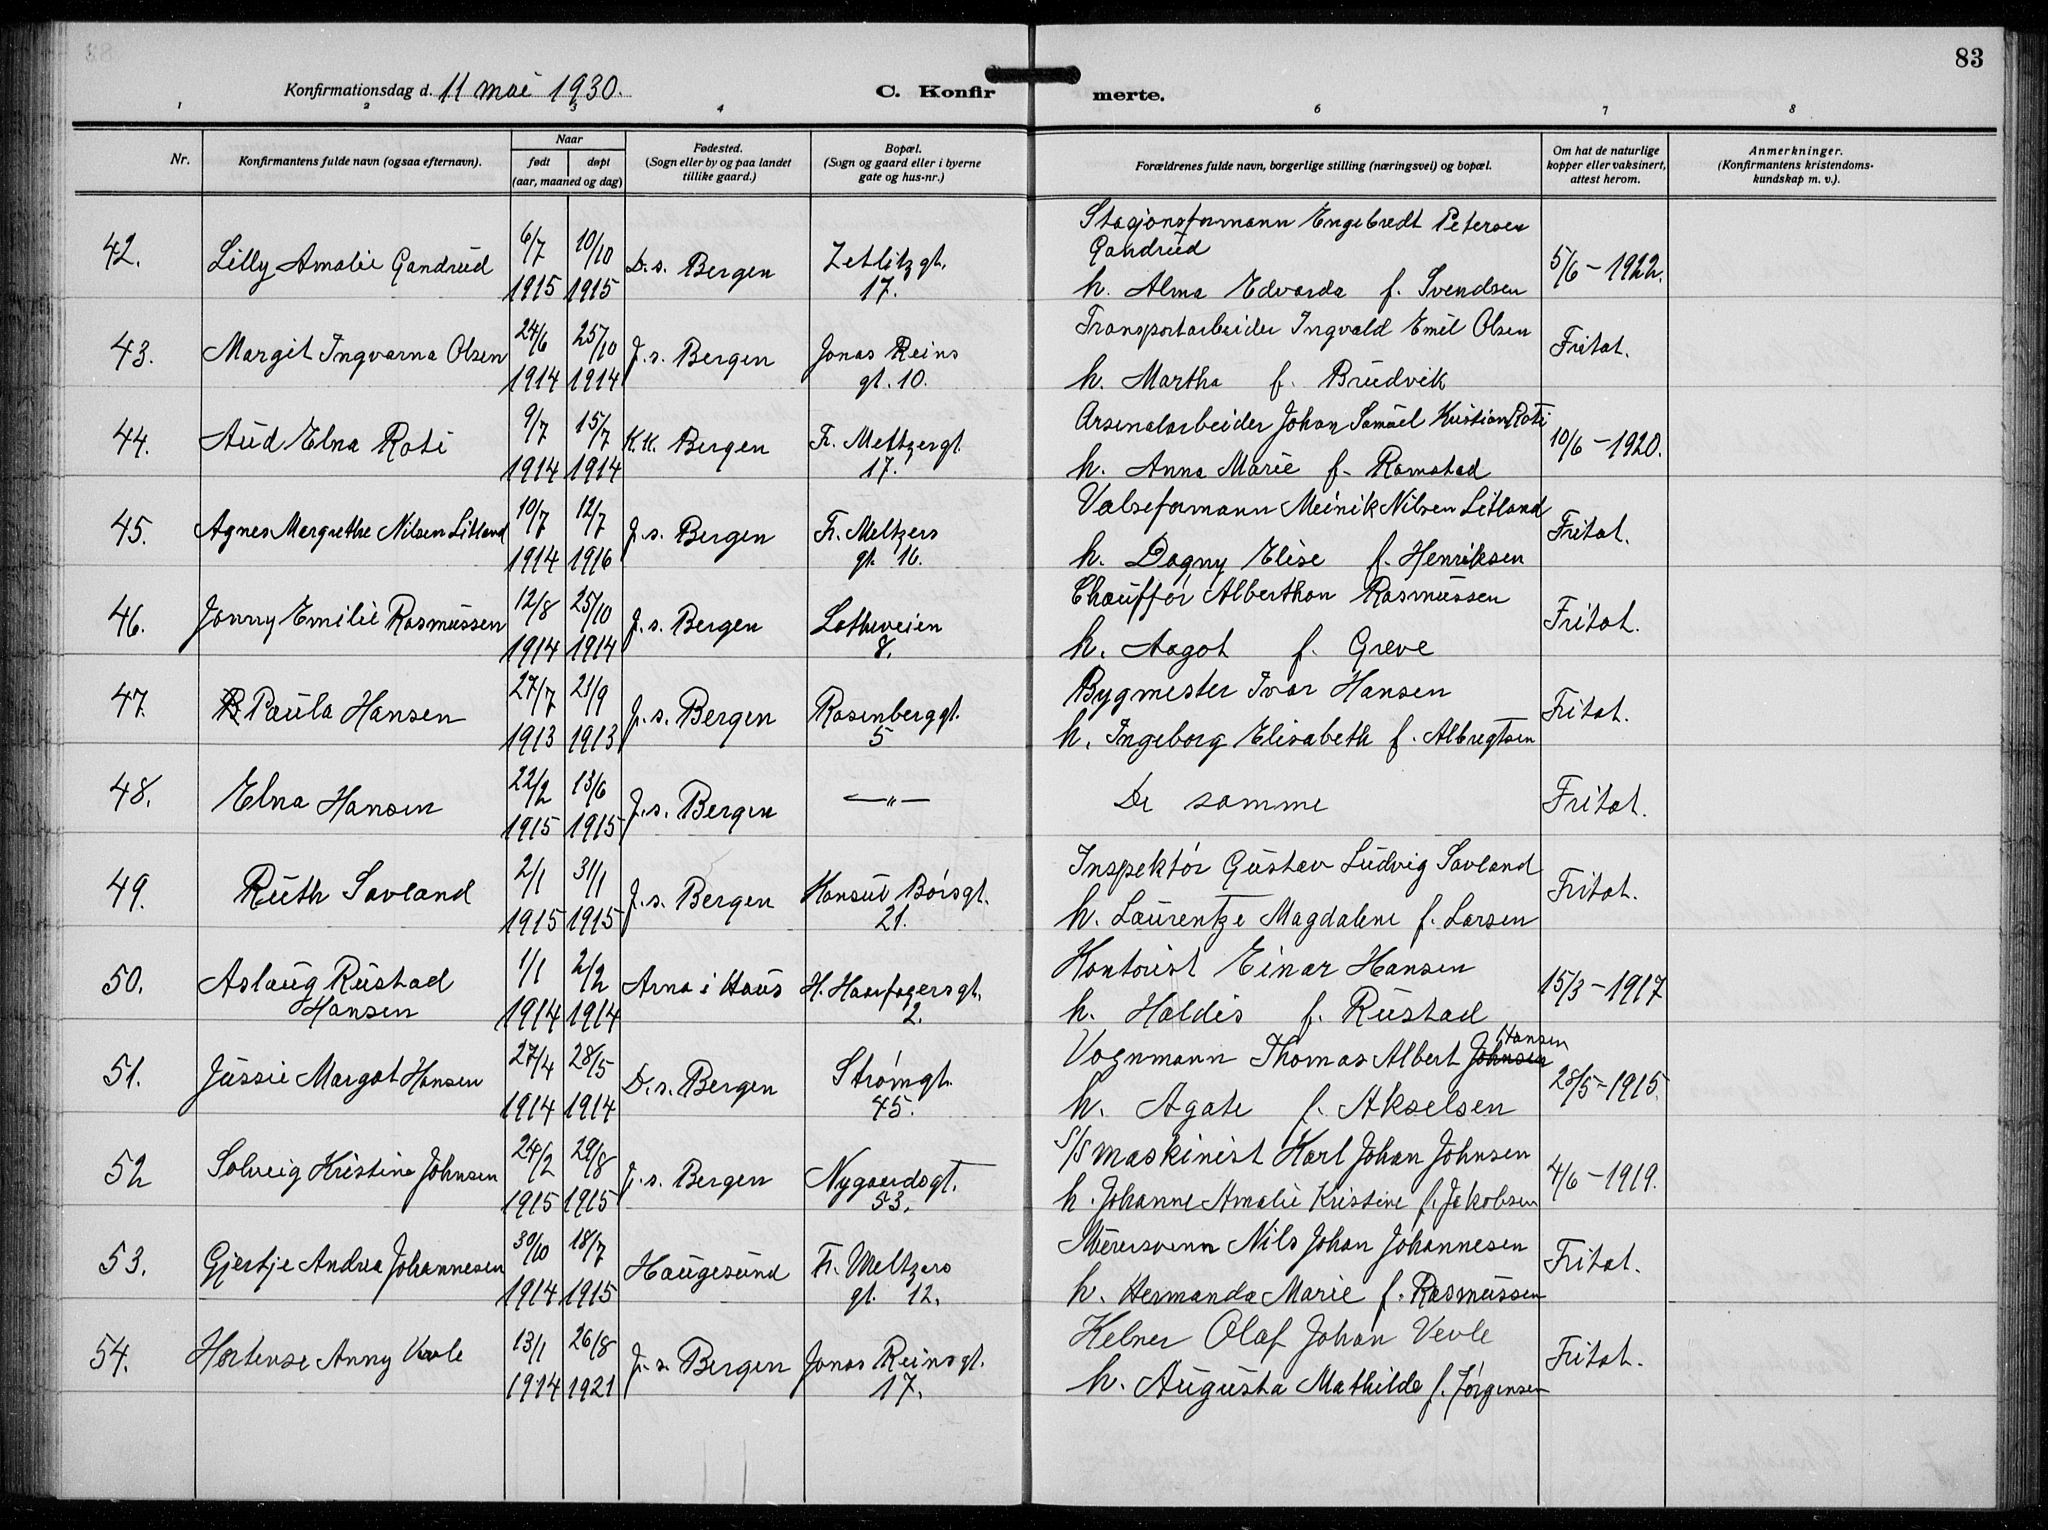 83
Konfirmationsdag d. 11 mai 1930.
C. Konfirmerte.
1 2 3 4 6 7 8
Nr.
Konfirmantens fulde navn (ogsaa efternavn).
Naar
født
døpt
(aar, maaned og dag)
Fødested.
(Sogn eller by og paa landet
tillike gaard.)
Bopæl.
(Sogn og gaard eller i byerne
gate og hus-nr.)
Forældrenes fulde navn, borgerlige stilling (næringsvei) og bopæl.
Om hat de naturlige
kopper eller vaksinert,
attest herom.
Anmerkninger.
(Konfirmantens kristendoms-
kundskap m. v.).
42. Lilly Amalie Gandrud 6/7 1915 10/10 1915 D.s. Bergen Zetlitzgt. 17.
Stasjonsformann Engebredt Petersen
Gandrud
h. Alma Edvarda f. Svendsen
5/6 – 1922.
43. Margit Ingvarna Olsen 24/6 1914 25/10 1914 J.s. Bergen Jonas Reins gt. 10.
Transportarbeider Ingvald Emil Olsen
h. Martha f. Brudvik
Fritat.
44. Aud Elna Roti 9/7 1914 15/7 1914 K.K. Bergen Fr. Meltzergt. 17.
Arsenalarbeider Johan Samuel Kristian Roti
h. Anna Marie f. Ramstad
10/6 – 1920.
45. Agnes Margrethe Nilsen Litland 10/7 1914 12/7 1916 J.s. Bergen Fr. Meltzers gt. 16.
Valseformann Meinik Nilsen Litland
h. Dagny Elise f. Henriksen
Fritat.
46. Jonny Emilie Rasmussen 12/8 1914 25/10 1914 J.s. Bergen Lotheveien 8.
Chauffør Alberthon Rasmussen
h. Aagot f. Greve
Fritat.
47. Paula Hansen 27/7 1913 21/9 1913 J.s. Bergen Rosenberggt. 5
Bygmester Ivar Hansen
h. Ingeborg Elisabeth f. Albregtsen
Fritat.
48. Elna Hansen 22/2 1915 13/6 1915 J.s. Bergen —"—
De samme
Fritat.
49. Ruth Savland 2/1 1915 31/1 1915 J.s. Bergen Konsul Børsgt. 21.
Inspektør Gustav Ludvig Savland
h. Laurentze Magdalene f. Larsen
Fritat.
50. Aslaug Rustad
Hansen 1/1 1914 2/2 1914 Arna i Haus H. Haarfagersgt. 2.
Kontorist Einar Hansen
h. Haldis f. Rustad
15/3 – 1917
51. Jussie Margot Hansen 27/4 1914 28/5 1914 D.s. Bergen Strømgt. 45.
Vognmann Thomas Albert Johnsen Hansen
h. Agate f. Akselsen
28/5 – 1915.
52 Solveig Kristine Johnsen 24/2 1915 29/8 1915 J.s. Bergen Nygaardsgt. 53.
S/S maskinist Karl Johan Johnsen
h. Johanne Amalie Kristine f. Jakobsen
4/6 – 1919.
53. Gjertje Andrea Johannesen 30/10 1914 18/7 1915 Haugesund Fr. Meltzers gt. 12.
Nils Johan Johannesen
h. Hermanda Marie f. Rasmussen
Fritat.
54. Hortense Anny Vevle 13/1 1914 26/8 1921 J.s. Bergen Jonas Reinsgt. 17.
Kelner Olaf Johan Vevle
h. Augusta Mathilde f. Jørgensen
Fritat.